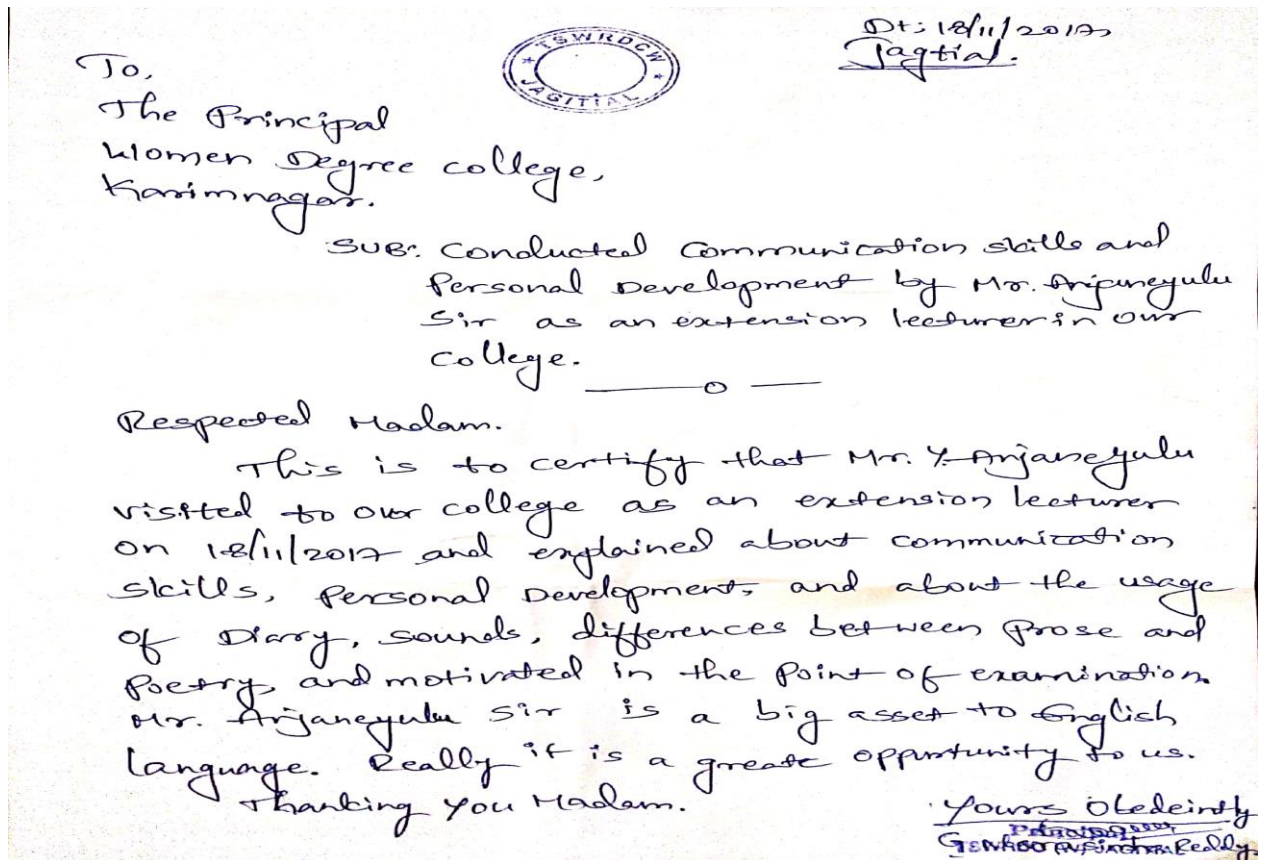 Dt: 18/11/2017
Jagtial.
TSWRDCW
JAGITIAL
To,
The Principal
Women Degree college,
Karimnagar.
SUB: Conducted Communication skills and
Personal Development by Mr. Anjuneyulu
Sir as an extension lecturer in our
college.
Respected Madam.
This is to certify that Mr. Y. Anjaneyulu
visited to our college as an extension lecturer
on 18/11/2017 and explained about communication
skills, Personal Development, and about the usage
of Diary, sounds, differences between Prose and
Poetry, and motivated in the Point of examination.
Mr. Anjaneyulu Sir is a big asset to English
Language. Really it is a greate opportunity to us.
Thanking you Madam.
Yours Obedeintly
Reddy